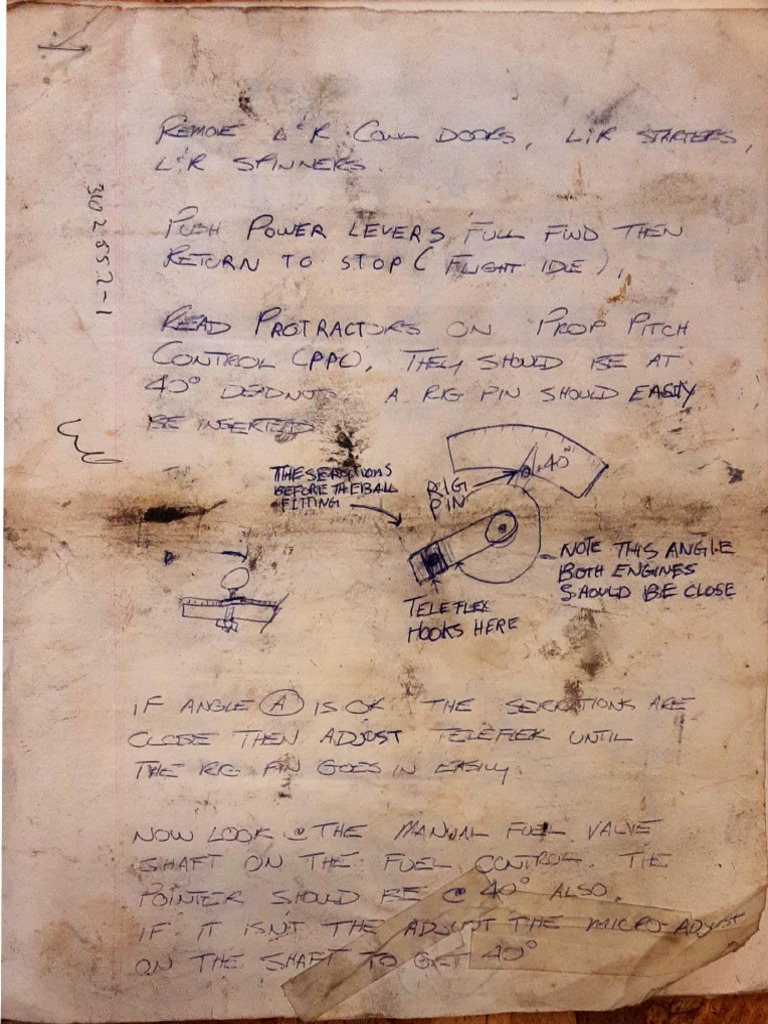 REMOVE L&R COWL DOORS, L&R STARTERS,
L&R SPINNERS.
PUSH POWER LEVERS FULL FWD THEN
RETURN TO STOP (FLIGHT IDLE),
READ PROTRACTORS ON PROP PITCH
CONTROL (PPC), THEY SHOULD BE AT
40° DEADNUTS. A RIG PIN SHOULD EASILY
BE INSERTED
THE SERRATIONS
BEFORE THE BALL
FITTING
RIG
PIN
40°
NOTE THIS ANGLE
BOTH ENGINES
SHOULD BE CLOSE
TELEFLEX
HOOKS HERE
IF ANGLE A IS OK THE SERRATIONS ARE
CLOSE THEN ADJUST TELEFLEX UNTIL
THE RIG PIN GOES IN EASILY.
NOW LOOK @ THE MANUAL FUEL VALVE
SHAFT ON THE FUEL CONTROL. THE
POINTER SHOULD BE @ 40° ALSO.
IF IT ISN'T THE ADJUST THE MICRO-ADJUST
ON THE SHAFT TO GET 40°
3102552-1